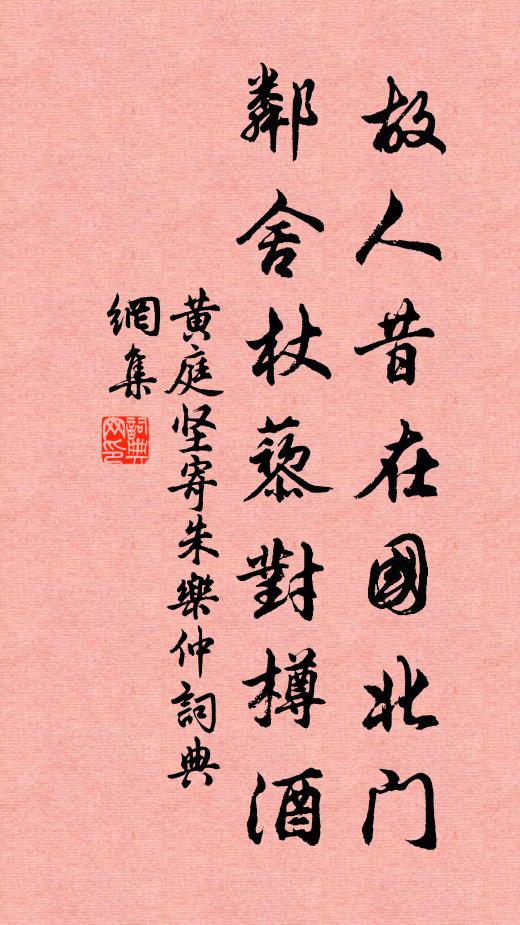 故人昔在國北门
鄰舍杖藜對樽酒
黄庭坚寄朱樂仲詞典
網集
詞典
网印